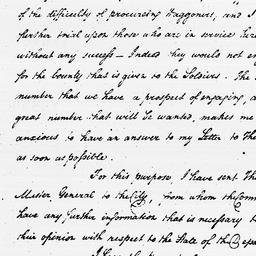 of the difficulty of procuring Waggoners, and I
further trial upon those who are in service
without any success — Indeed they would not en
for the bounty that is given to the Soldiers. The
number that we have a prospect of engaging, a
great number that will be wanted, makes me
anxious to have an answer to my Letter to The
as soon as possible.
For this purpose, I have sent Th
Master General to the City, from whom the Com
have any further information that is necessary t
their opinion with respect to the State of the Depa